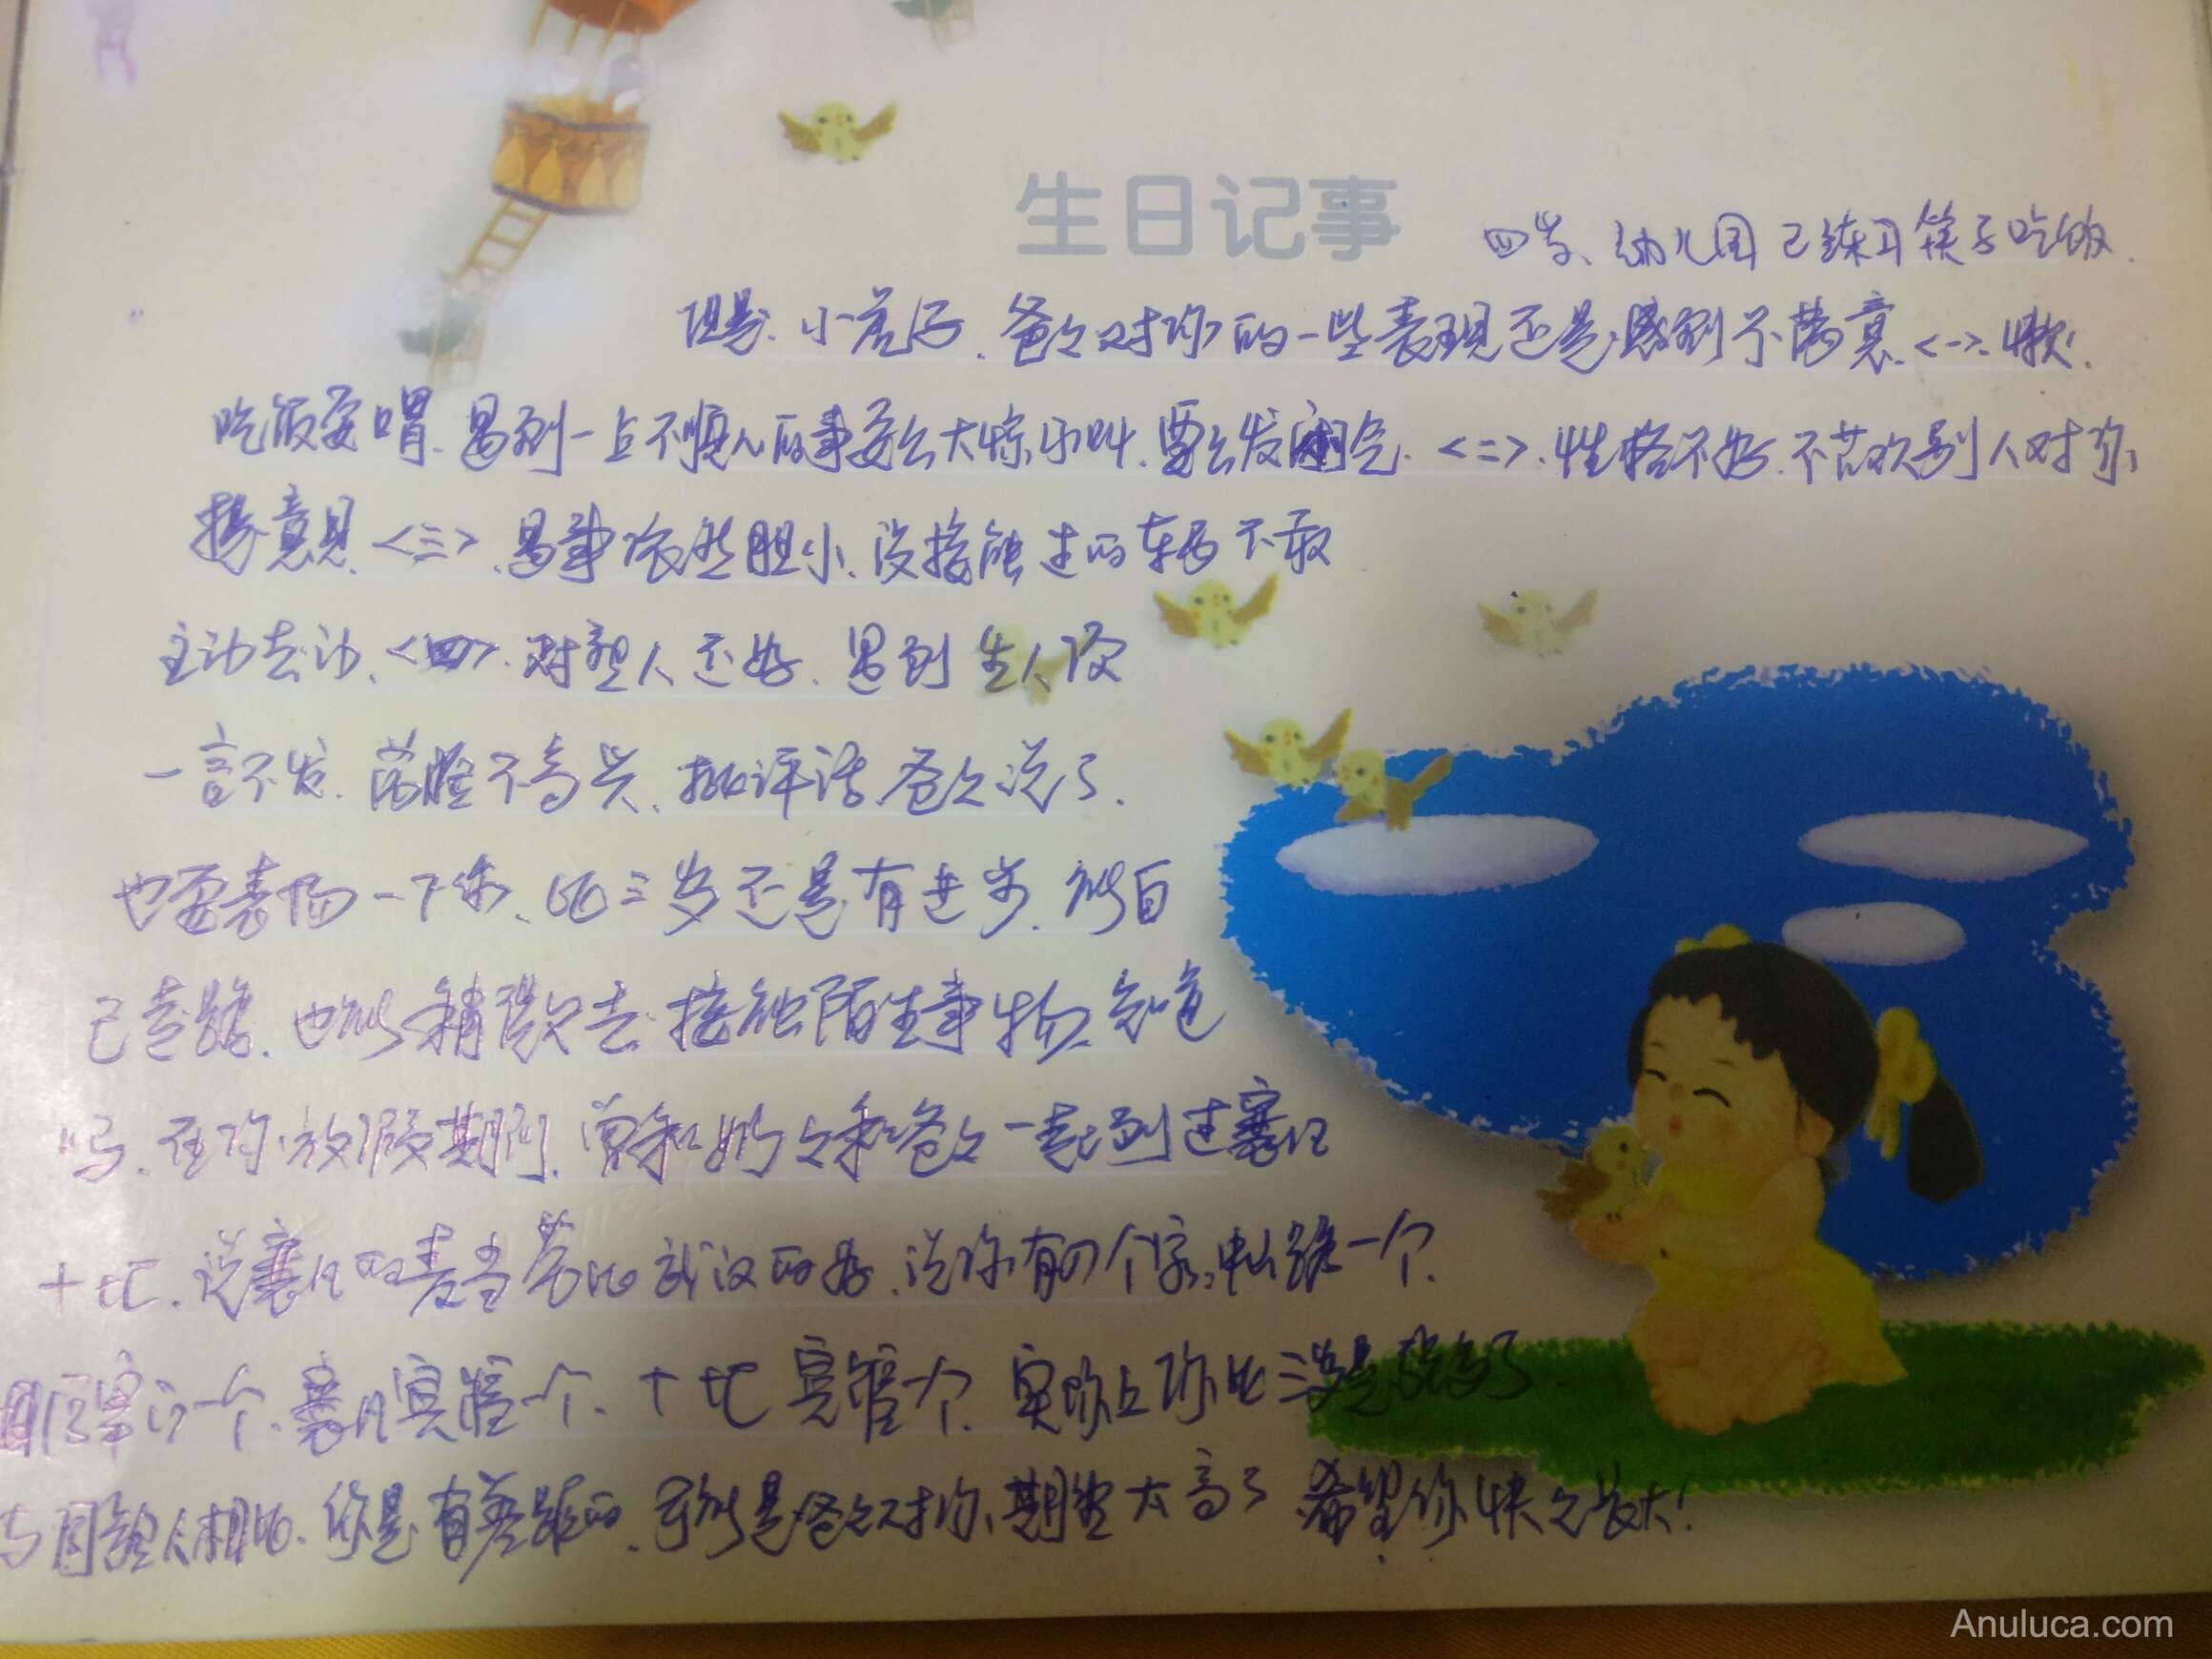 生日记事
四岁、幼儿园已练习筷子吃饭.
但是.小君子.爸爸对你的一些表现还是感到不满意.<一>.懒.
吃饭要喂.遇到一点不顺心的事要么大惊小叫.要么发闷气.<二>.性格不好.不喜欢别人对你
提意见.<三>.遇事依然胆小.没接触过的东西不敢
主动去动.<四>.对熟人还好.遇到生人没
一言不发.落脸不高兴.批评话爸爸说了.
也要表扬一下你.比三岁还是有进步.能自
己走路.也能稍微去接触陌生事物.知道
吗.在你放假期间.曾和妈妈和爸爸一起到过襄凡
十比.说襄凡的麦当劳比武汉的好.说你有四个家.中山路一个.
一个.襄凡宾馆一个.十比宾馆一个.实际上你比三岁是
与同龄人相比.你是有差距的.可能是爸爸对你期望太高了.希望你快快长大!
Anuluca.com